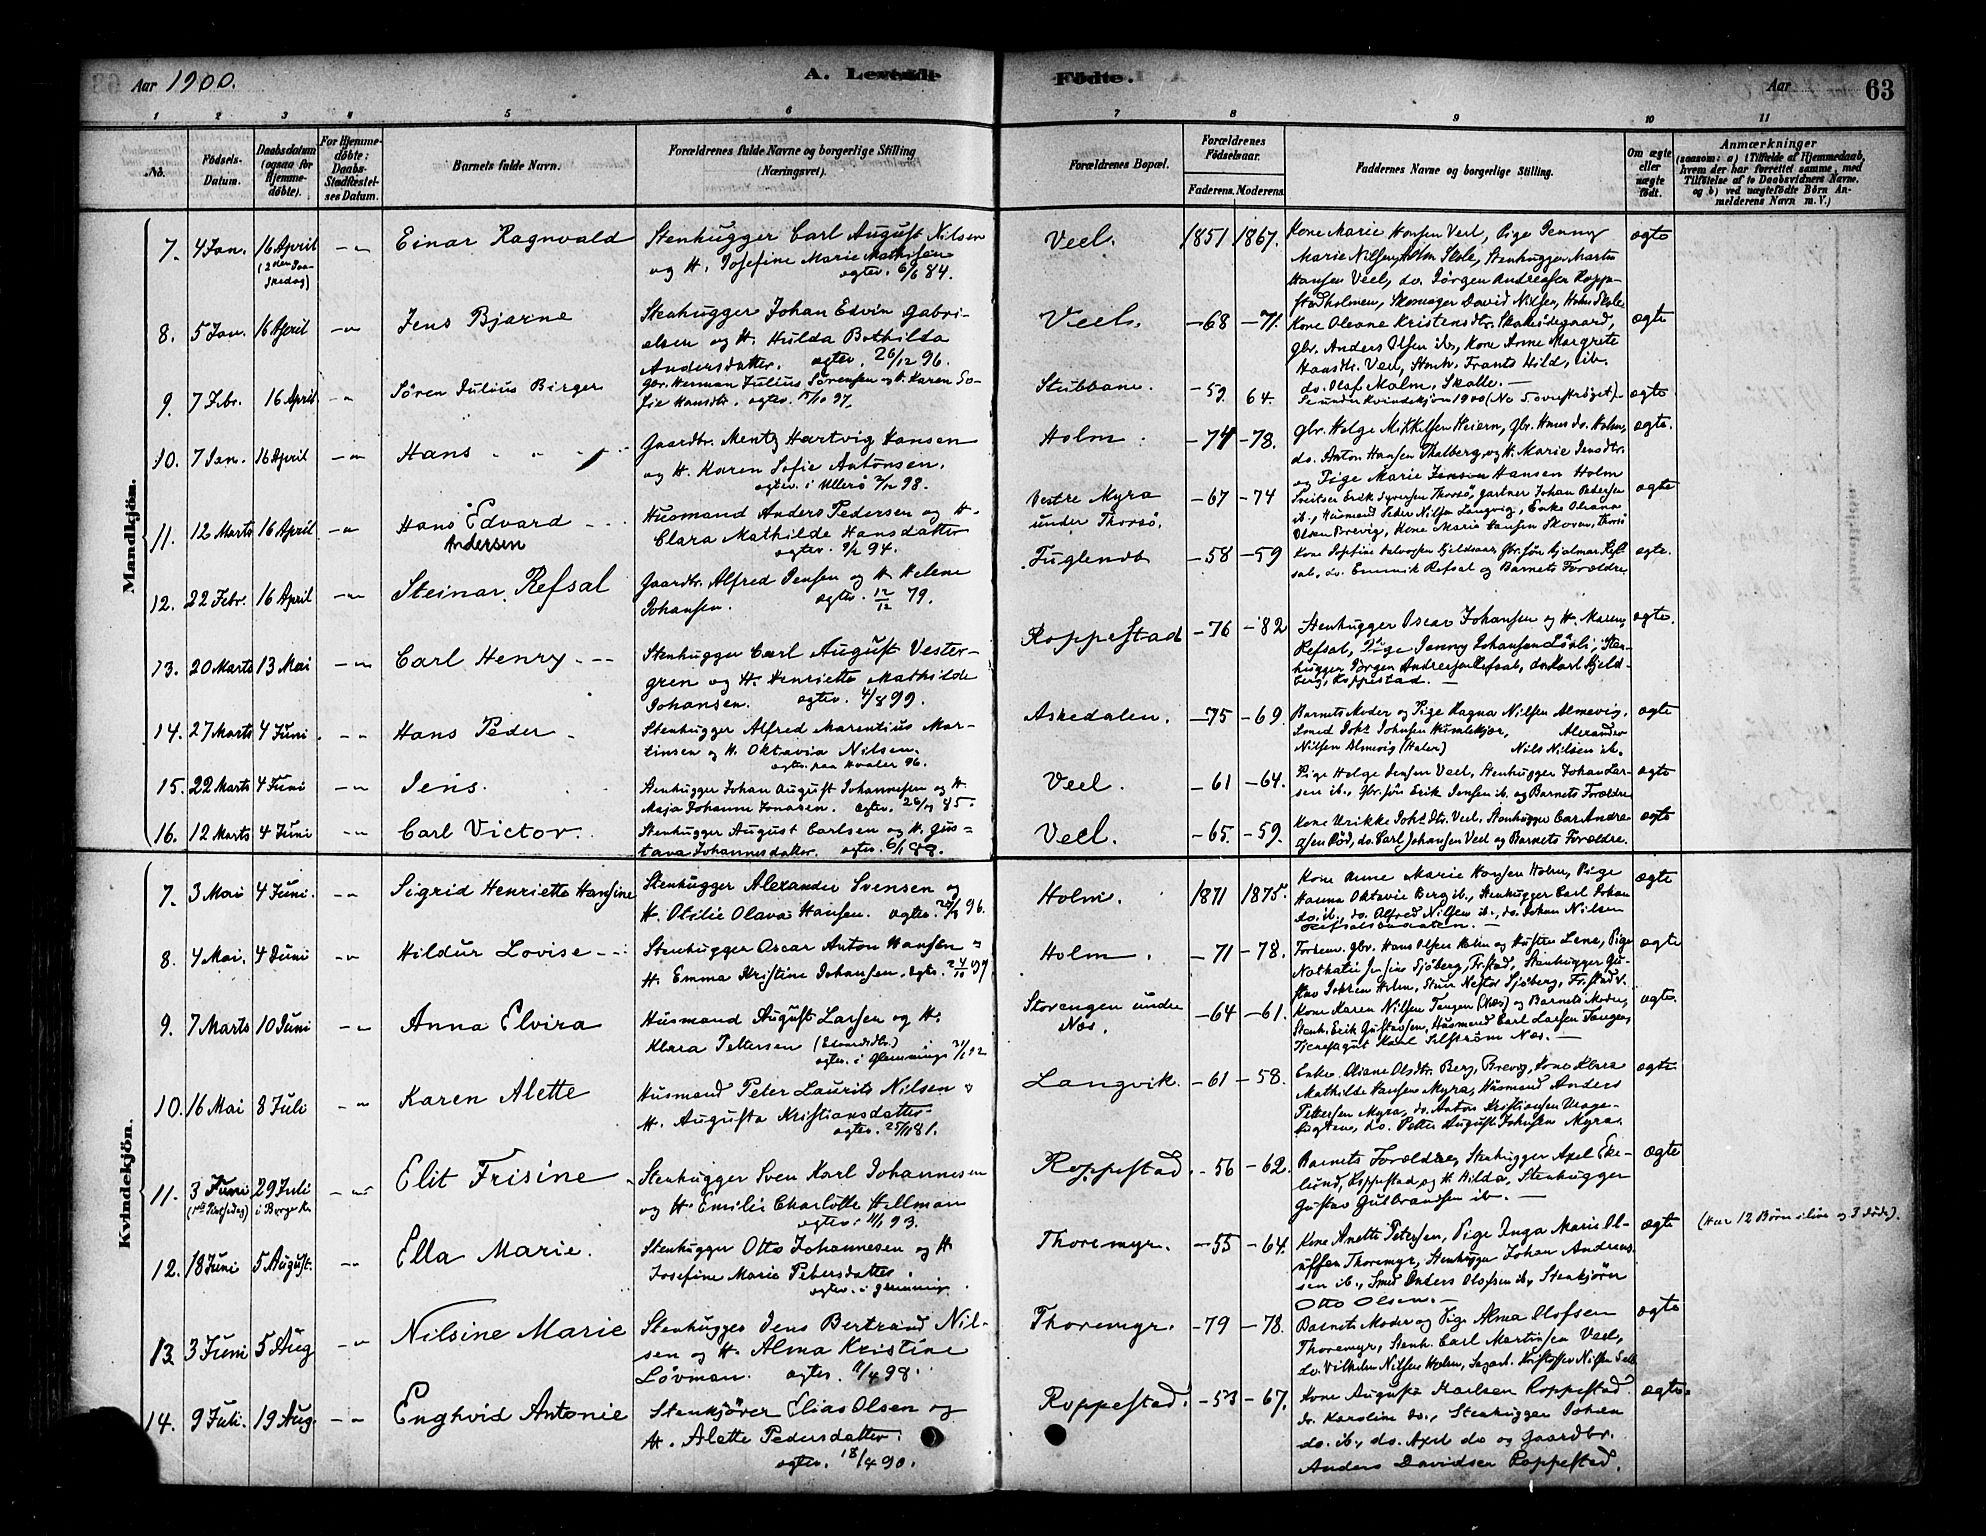 Aar 1900.
A. Levende
Fødte.
Aar
63
1 2 3 4 5 6 7 8 9 10 11
No.
Fødsels-
Datum.
Daabsdatum
(ogsaa for
Hjemme-
døbte).
For Hjemme-
døbte:
Daabs-
Stadfæstel-
ses Datum.
Barnets fulde Navn.
Forældrenes fulde Navne og borgerlige Stilling
(Næringsvei).
Forældrenes Bopæl.
Forældrenes
Fødselsaar.
Faderens. Moderens.
Faddernes Navne og borgerlige Stilling.
Om ægte
eller
uægte
født.
Anmærkninger
(saasom: a) i Tilfælde af Hjemmedaab,
hvem der har forrettet samme, med
Tilføielse af to Daabsvidners Navne,
og b) ved uægtefødte Børn An-
melderens Navn m. V.)
Mandkjön.
7. 4 Jan. 16 April Einar Ragnvald
Stenhugger Carl August Nilsen
og H. Josefine Marie Mathisen
ægtev. 6/6 84.
Veel. 1851 1867.
Kone Marie Hansen Veel, Pige Jenny
Marie Nilsen, Holm Skole, Stenhugger Martin
Hansen Veel, do. Jørgen Andreasen Roppe-
stadholmen, Skomager David Nilsen, Holm Skole
ægte
8. 5 Jan. 16 April Jens Bjarne
Stenhugger Johan Edvin Gabri-
elsen og H. Hulda Bothilda
Andersdatter. ægtev. 26/12 96.
Veel. -68 -71.
Kone Oleane Kristensdtr. Skakesødegaard,
Gbr. Anders Olsen ib., Kone Anne Margrete
Hansdtr. Veel, Stenh. Frants Hild, ib.
do. Olaf Malm, Skolle. -
ægte
9. 7 Febr. 16 April Søren Julius Birger
Gbr. Herman Julius Sørensen og H. Karen So-
fie Hansdtr. ægtev. 97.
Stubbane. -59. 64.
Se under Kvindekjøn 1900 (No 5 overstrøget).
ægte
10. 7 Jan. 16 April Hans
Gaardbr. Mentz Hartvig Hansen
og H. Karen Sofie Antonsen.
ægtev. i Ullerø 98.
Holm. -74 -78.
Gbr. Helge Mikkelsen Heiern, Gbr. Hans do. Holm,
do. Anton Hansen Thalberg, og H. Marie Jensdtr.
og Pige Marie Hansen Holm
ægte.
11. 12 Marts 16 April Hans Edvard
Andersen
Husmand Anders Pedersen og H.
Clara Mathilde Hansdatter
ægtev. 94.
Vestre Myra
under Thorsø. -67 -74
Sveitser Erik Syversen Thorsø, Gartner Johan Pedersen
ib., Husmand Peder Nilsen Langvig, Enke Oleana
Olsen Brevig, Kone Marie Hansen Skoven, Thorsø
ægte
12. 22 Febr. 16 April Steinar Refsal
Gaardbr. Alfred Jensen og H. Helene
Johansen. ægtev. 12/12 79.
Fuglevik -58 -59
sal, do. Emmik Refsal og Barnets Forældre
ægte.
13. 20 Marts 13 Mai Carl Henry
Stenhugger Carl August Vester-
gren og H. Henriette Mathilde
Johansen. ægtev. 4/8 99.
Roppestad -76 -82
Stenhugger Oscar Johansen og H. Maren,
Refsal, Pige Jenny Johansen Løvli, Sten-
hugger Jørgen Andreasen Refsal, do. Karl Kjeld-
berg, Roppestad. -
ægte.
14. 27 Marts 4 Juni Hans Peder
Stenhugger Alfred Marentius Mar-
tinsen og H. Oktavia Nilsen.
ægtev. paa Hvaler 96.
Askedalen. -75 -69.
Barnets Moder og Pige Ragna Nilsen Almevig,
Smed Joh. Johnsen Humlekjær, Alexander
Nilsen Almevig (Hvaler) Nils Nilsen ib.
ægte
15. 22 Marts 4 Juni Jens.
Stenhugger Johan August Johannesen og H
Maja Johanne Jonasen. ægtev. 85.
Veel. -61 -64.
Pige Helge Jensen Veel, Stenhugger Johan Lar-
sen ib., Gbr. søn Erik Jensen ib. og Barnets Forældre
ægte
16. 12 Marts 4 Juni Carl Victor.
Stenhugger August Carlsen og H. Gus-
tava Johannesdatter. ægtev. 6/1 88.
Veel. -65. -59.
Kone Ulrikke Joh. dtr. Veel, Stenhugger Carl Andre-
asen Rød, do. Carl Johansen Veel og Barnets Forældre.
ægte
Kvindekjön.
7. 3 Mai 4 Juni. Sigrid Henriette Hansine
Stenhugger Alexander Svensen og
H. Otilie Olava Hansen. ægtev. 96.
Holm. 1871 1875.
Kone Anne Marie Hansen Holm, Pige
Hanna Oktavie Berg ib., Stenhugger Carl Johan
do. ib., do. Alfred Nilsen ib., do. Johan Nilsen
ægte
8. 4 Mai. 4 Juni Hildur Lovise
Stenhugger Oscar Anton Hansen
H. Emma Kristine Johansen. ægtev. 97
Holm. -71 -78.
Forhenv. Gbr. Hans Olsen Holm og Hustru Lene, Pige
Nathalie Josefine Sjøberg, Fr.stad, Stenhugger Gu-
stav Johnsen Holm, Nestor Sjøberg, Fr.stad.
ægte
9. 7 Marts 10 Juni Anna Elvira
Husmand August Larsen og H.
Klara Pettersen (Edvardsdtr.)
ægtev. i Glemminge
Storengen under
Næs. -64 -61.
Kone Karen Nilsen Tangen (Næs) og Barnets Moder,
Stenh. Erik Gustavsen, Husmand Carl Larsen Tangen,
Tjenestgut Karl Selstrøm Næs. -
ægte.
10. 16 Mai 8 Juli Karen Alette
Husmand Peter Laurits Nilsen
H. Augusta Kristiansdatter
ægtev. 25/11 81.
Langvik. -61 -58.
Enke Oliane Olsdtr. Berg, Brevig, Kone Klara
Mathilde Hansen Myra, Husmand Anders
Pettersen Myra, do. Anton Kristiansen
do. Petter August Johnsen Myra.
ægte
11. 3 Juni 29 Juli
i Borge K. Elit Frisine
Stenhugger Sven Karl Johannesen
og H. Emilie Charlotte Hellman
ægtev. 93.
Roppestad. -56 -62.
Barnets Forældre, Stenhugger Axel Eke-
lund, Roppestad, og H. Hilda, Stenhugger
Gustav Gulbrandsen ib. -
ægte
12. 18 Juni 5 August. Ella Marie.
Stenhugger Otto Johannesen og H
Josefine Marie Petersdatter.
ægtev. i Glemminge
Thoremyr. -55 -64.
Kone Anette Petersen, Pige Inga Marie Ol-
uffsen Thoremyr, Stenhugger Johan Andrea-
sen ib., Smed Anders Olofsen ib., Stenkjører
Otto Olsen. -
ægte
(Har 12 Børn ilive og 3 døde).
13. 3 Juni 5 Aug Nilsine Marie
Stenhugger Jens Bertrand Nil-
sen og H. Alma Kristine
Lövman. ægtev. 98.
Thoremyr. -79 -78.
Barnets Moder og Pige Alma Olofsen
Thoremyr, Stenh. Carl Martinsen Veel,
do. Vilhelm Nilsen Holm, Kristoffer Nilsen
ægte
14. 9 Juli. 19 Aug. Enghvid Antonie
Stenkjører Elias Olsen og
H. Alette Pedersdatter.
ægtev. 18/4 90.
Roppestad. -53 -67.
Kone Augusta Karlsen Roppestad
do. Karoline do., Stenhugger Johan
do. ib., do. Axel do og Gaardbr.
Anders Davidsen Roppestad.
ægte.